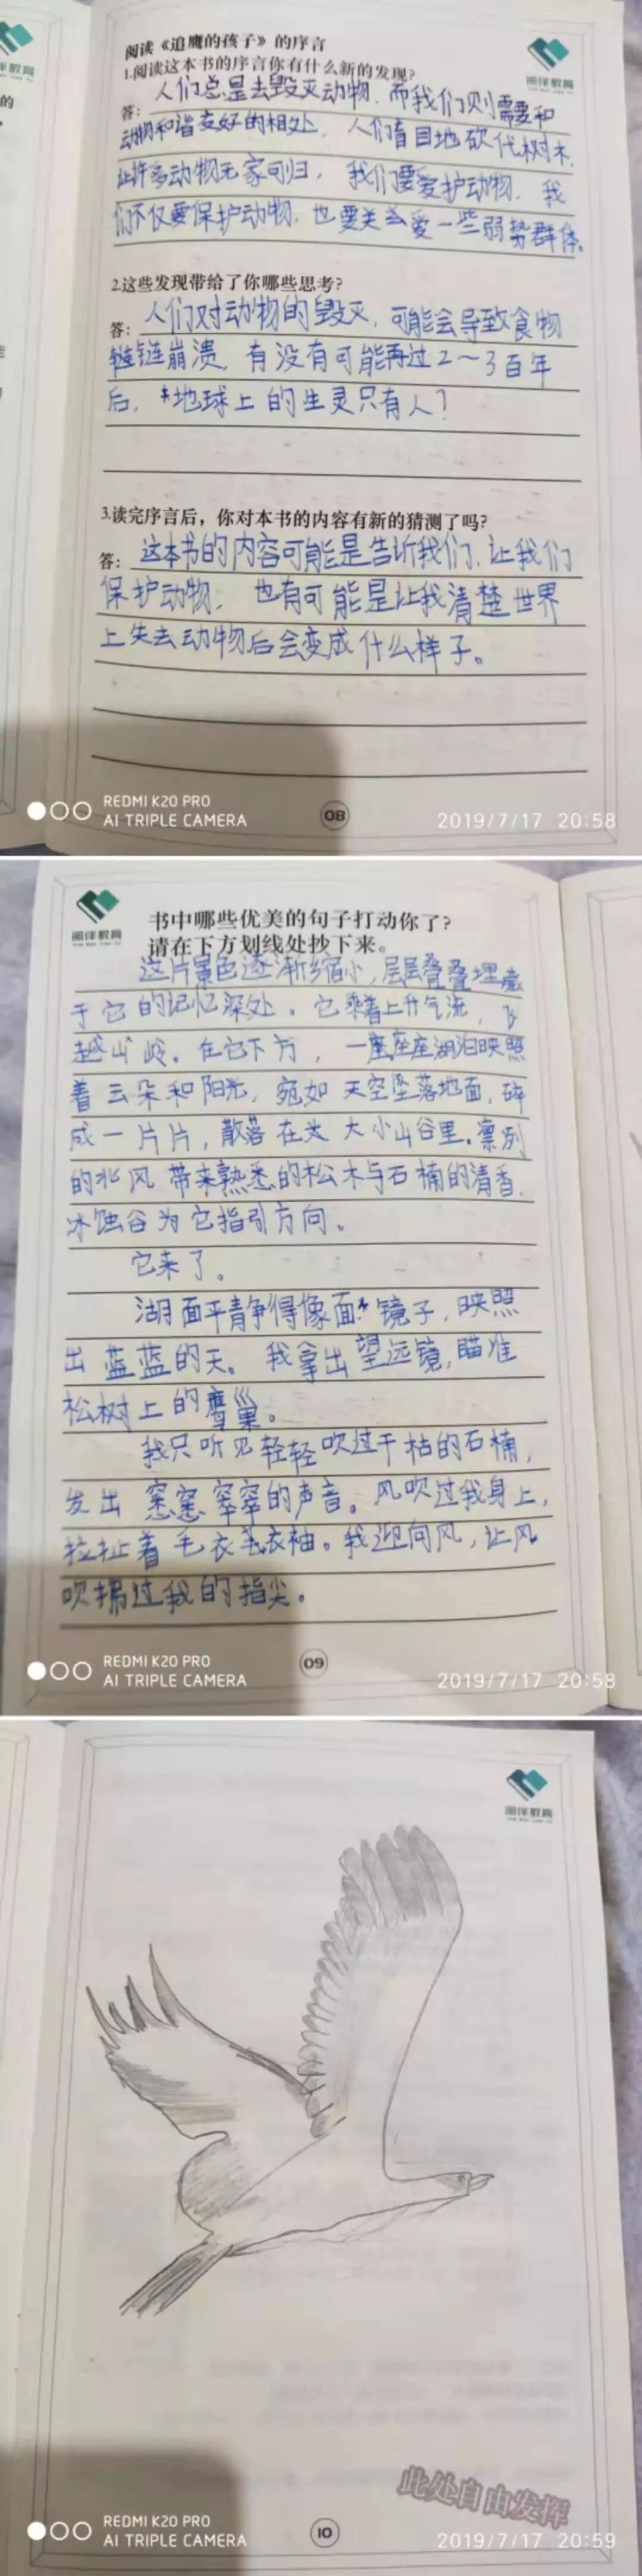 阅读《追鹰的孩子》的序言
1.阅读这本书的序言你有什么新的发现?
答: 人们总是去毁灭动物,而我们则需要和
动物和谐友好的相处,人们盲目地砍伐树木,
让许多动物无家可归,我们要爱护动物,我
们不仅要保护动物,也要关爱一些弱势群体。
2.这些发现带给了你哪些思考?
答: 人们对动物的毁灭,可能会导致食物
链崩溃,有没有可能再过2~3百年
后,地球上的生灵只有人?
3.读完序言后,你对本书的内容有新的猜测了吗?
答: 这本书的内容可能是告诉我们,让我们
保护动物,也有可能是让我清楚世界
上失去动物后会变成什么样子。
REDMI K20 PRO
AI TRIPLE CAMERA
08
2019/7/17 20:58
阅伴教育
书中哪些优美的句子打动你了?
请在下方划线处抄下来。
这片景色逐渐缩小,层层叠叠埋藏
于它的记忆深处。它乘着上升气流,飞
越山岭。在它下方,一座座湖泊映照
着云朵和阳光,宛如天空坠落地面,碎
成一片片,散落在大大小小山谷里。凛冽
的北风带来熟悉的松木与石楠的清香,
冰蚀谷为它指引方向。
它来了。
湖面平静得像面镜子,映照
出蓝蓝的天。我拿出望远镜,瞄准
松树上的鹰巢。
我只听见轻轻吹过干枯的石楠,
发出窸窸窣窣的声音。风吹过我身上,
拉扯着毛衣衣袖。我迎向风,让风
吹拂过我的指尖。
REDMI K20 PRO
AI TRIPLE CAMERA
09
2019/7/17 20:58
阅伴教育
此处自由发挥
REDMI K20 PRO
AI TRIPLE CAMERA
10
2019/7/17 20:59